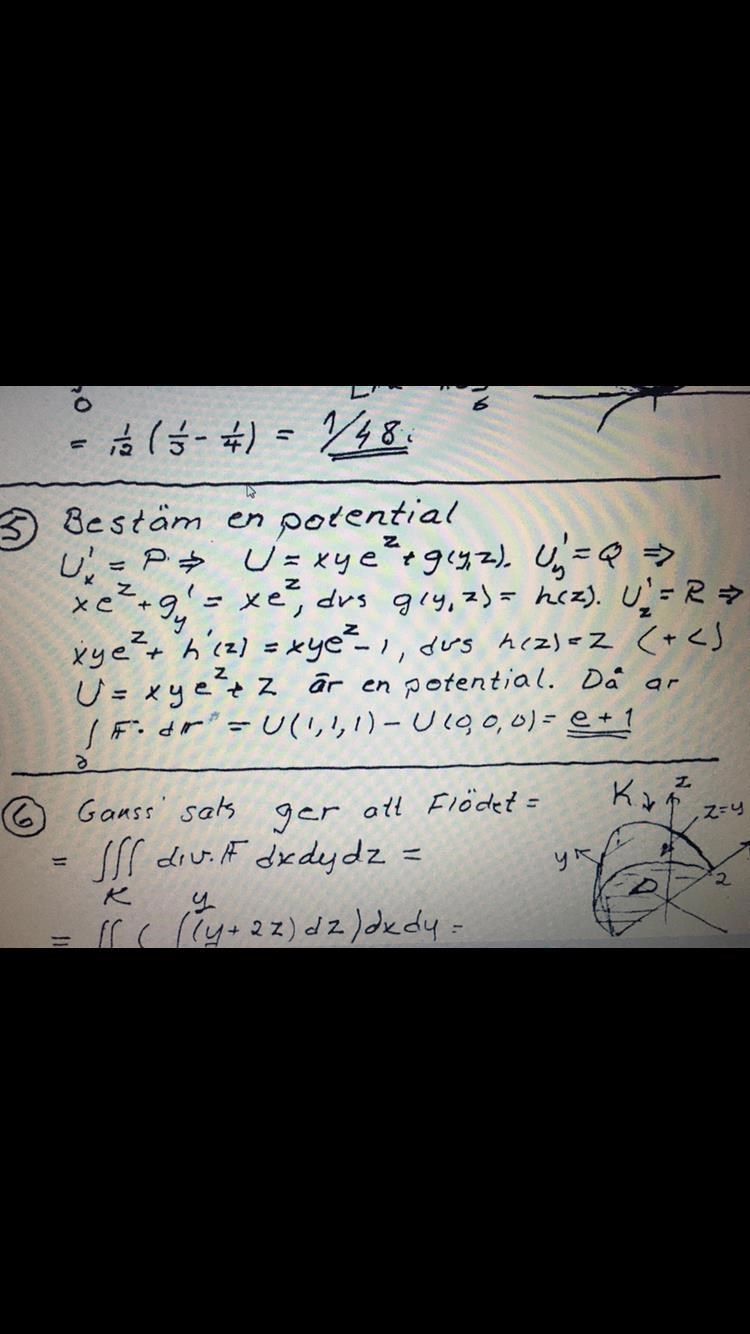 0
6
= 1/12 (1/3 - 1/4) = 1/48.
5 Bestäm en potential
U'x = P ⇒ U = xye^z + g(y,z). U'y = Q ⇒
xe^z + g'y = xe^z, dvs g(y,z) = h(z). U'z = R ⇒
xye^z + h'(z) = xye^z - 1, dvs h(z) = z (+C)
U = xye^z + z är en potential. Då är
∫ F · dr = U(1,1,1) - U(0,0,0) = e + 1
6 Gauss' sats ger att Flödet =
= ∭ div. F dxdydz =
K
y
= ∬ ( ∫(y + 2z) dz ) dxdy =
K
z
z=y
y
D
2